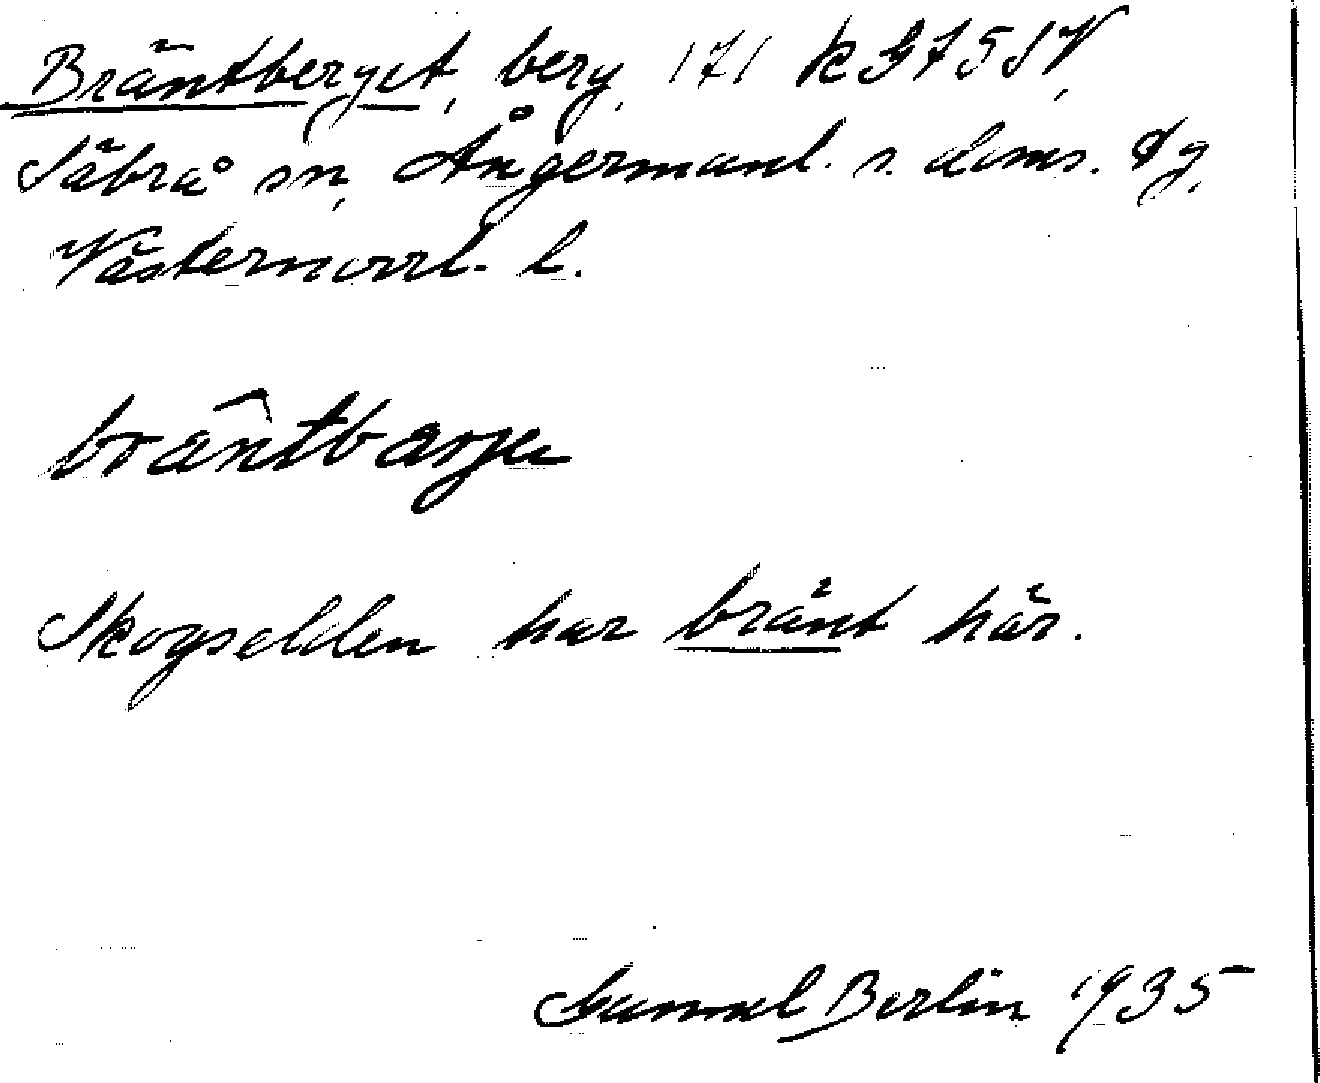 Bräntberget, berg, 171 k G7 5 SV,
Säbrå sn, Ångermanl. s. doms. dg,
Västernorrl. l.
bräntbarje
Skogselden har bränt här.
Samuel Berlin 1935